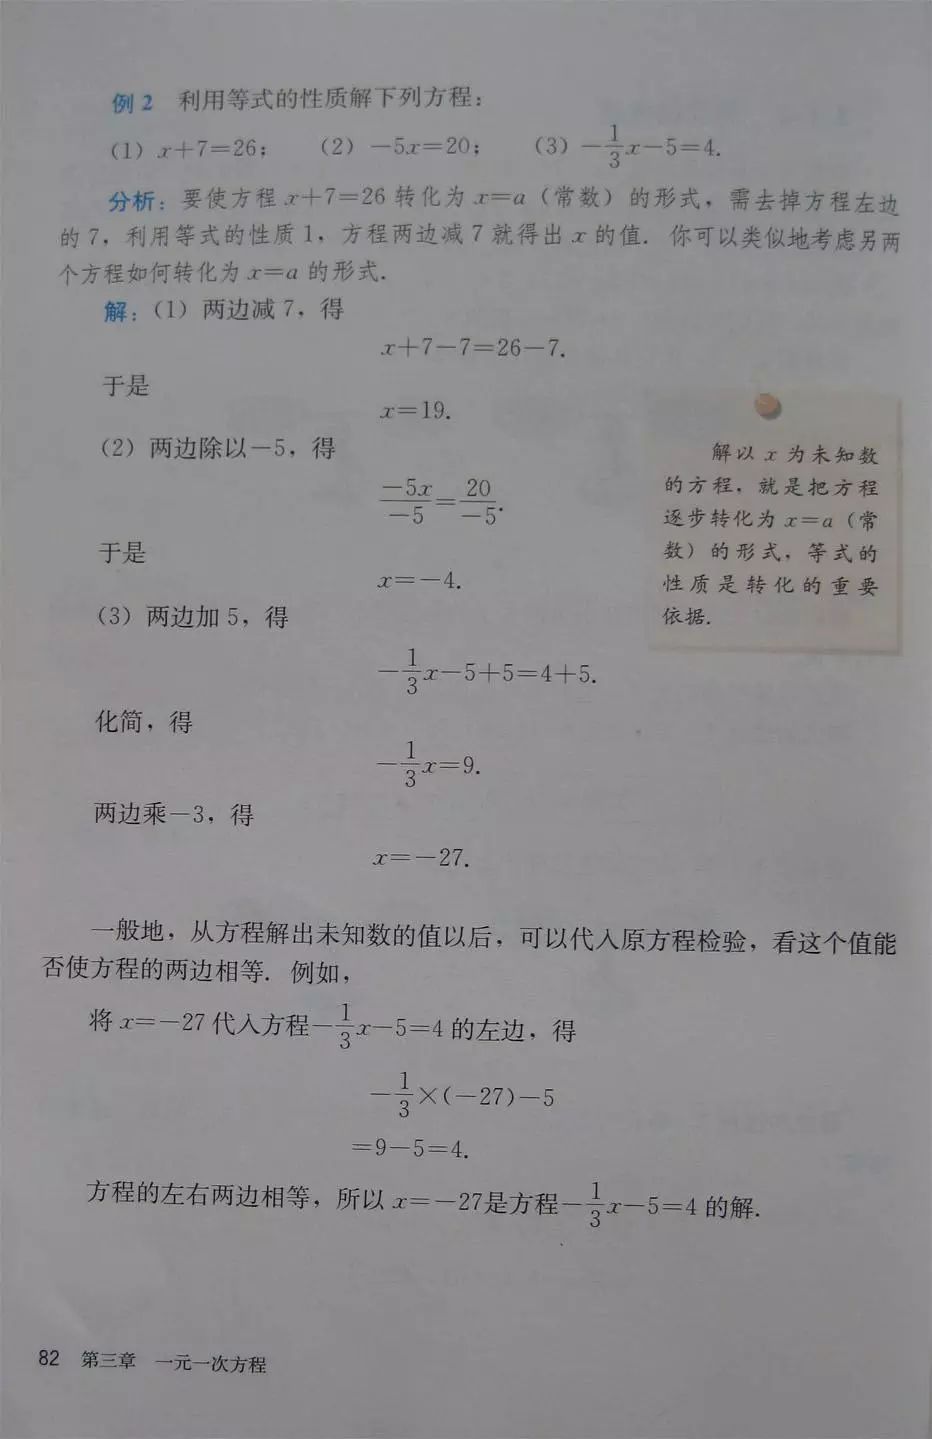 例2 利用等式的性质解下列方程：
(1) x+7=26； (2) -5x=20； (3) -1/3x-5=4.
分析：要使方程 x+7=26 转化为 x=a（常数）的形式，需去掉方程左边
的 7，利用等式的性质 1，方程两边减 7 就得出 x 的值. 你可以类似地考虑另两
个方程如何转化为 x=a 的形式.
解：(1) 两边减 7，得
x+7-7=26-7.
于是
x=19.
(2) 两边除以-5，得
-5x/-5=20/-5.
于是
x=-4.
(3) 两边加 5，得
-1/3x-5+5=4+5.
化简，得
-1/3x=9.
两边乘-3，得
x=-27.
解以 x 为未知数
的方程，就是把方程
逐步转化为 x=a（常
数）的形式，等式的
性质是转化的重要
依据.
一般地，从方程解出未知数的值以后，可以代入原方程检验，看这个值能
否使方程的两边相等. 例如，
将 x=-27 代入方程-1/3x-5=4 的左边，得
-1/3×(-27)-5
=9-5=4.
方程的左右两边相等，所以 x=-27是方程-1/3x-5=4 的解.
82 第三章 一元一次方程